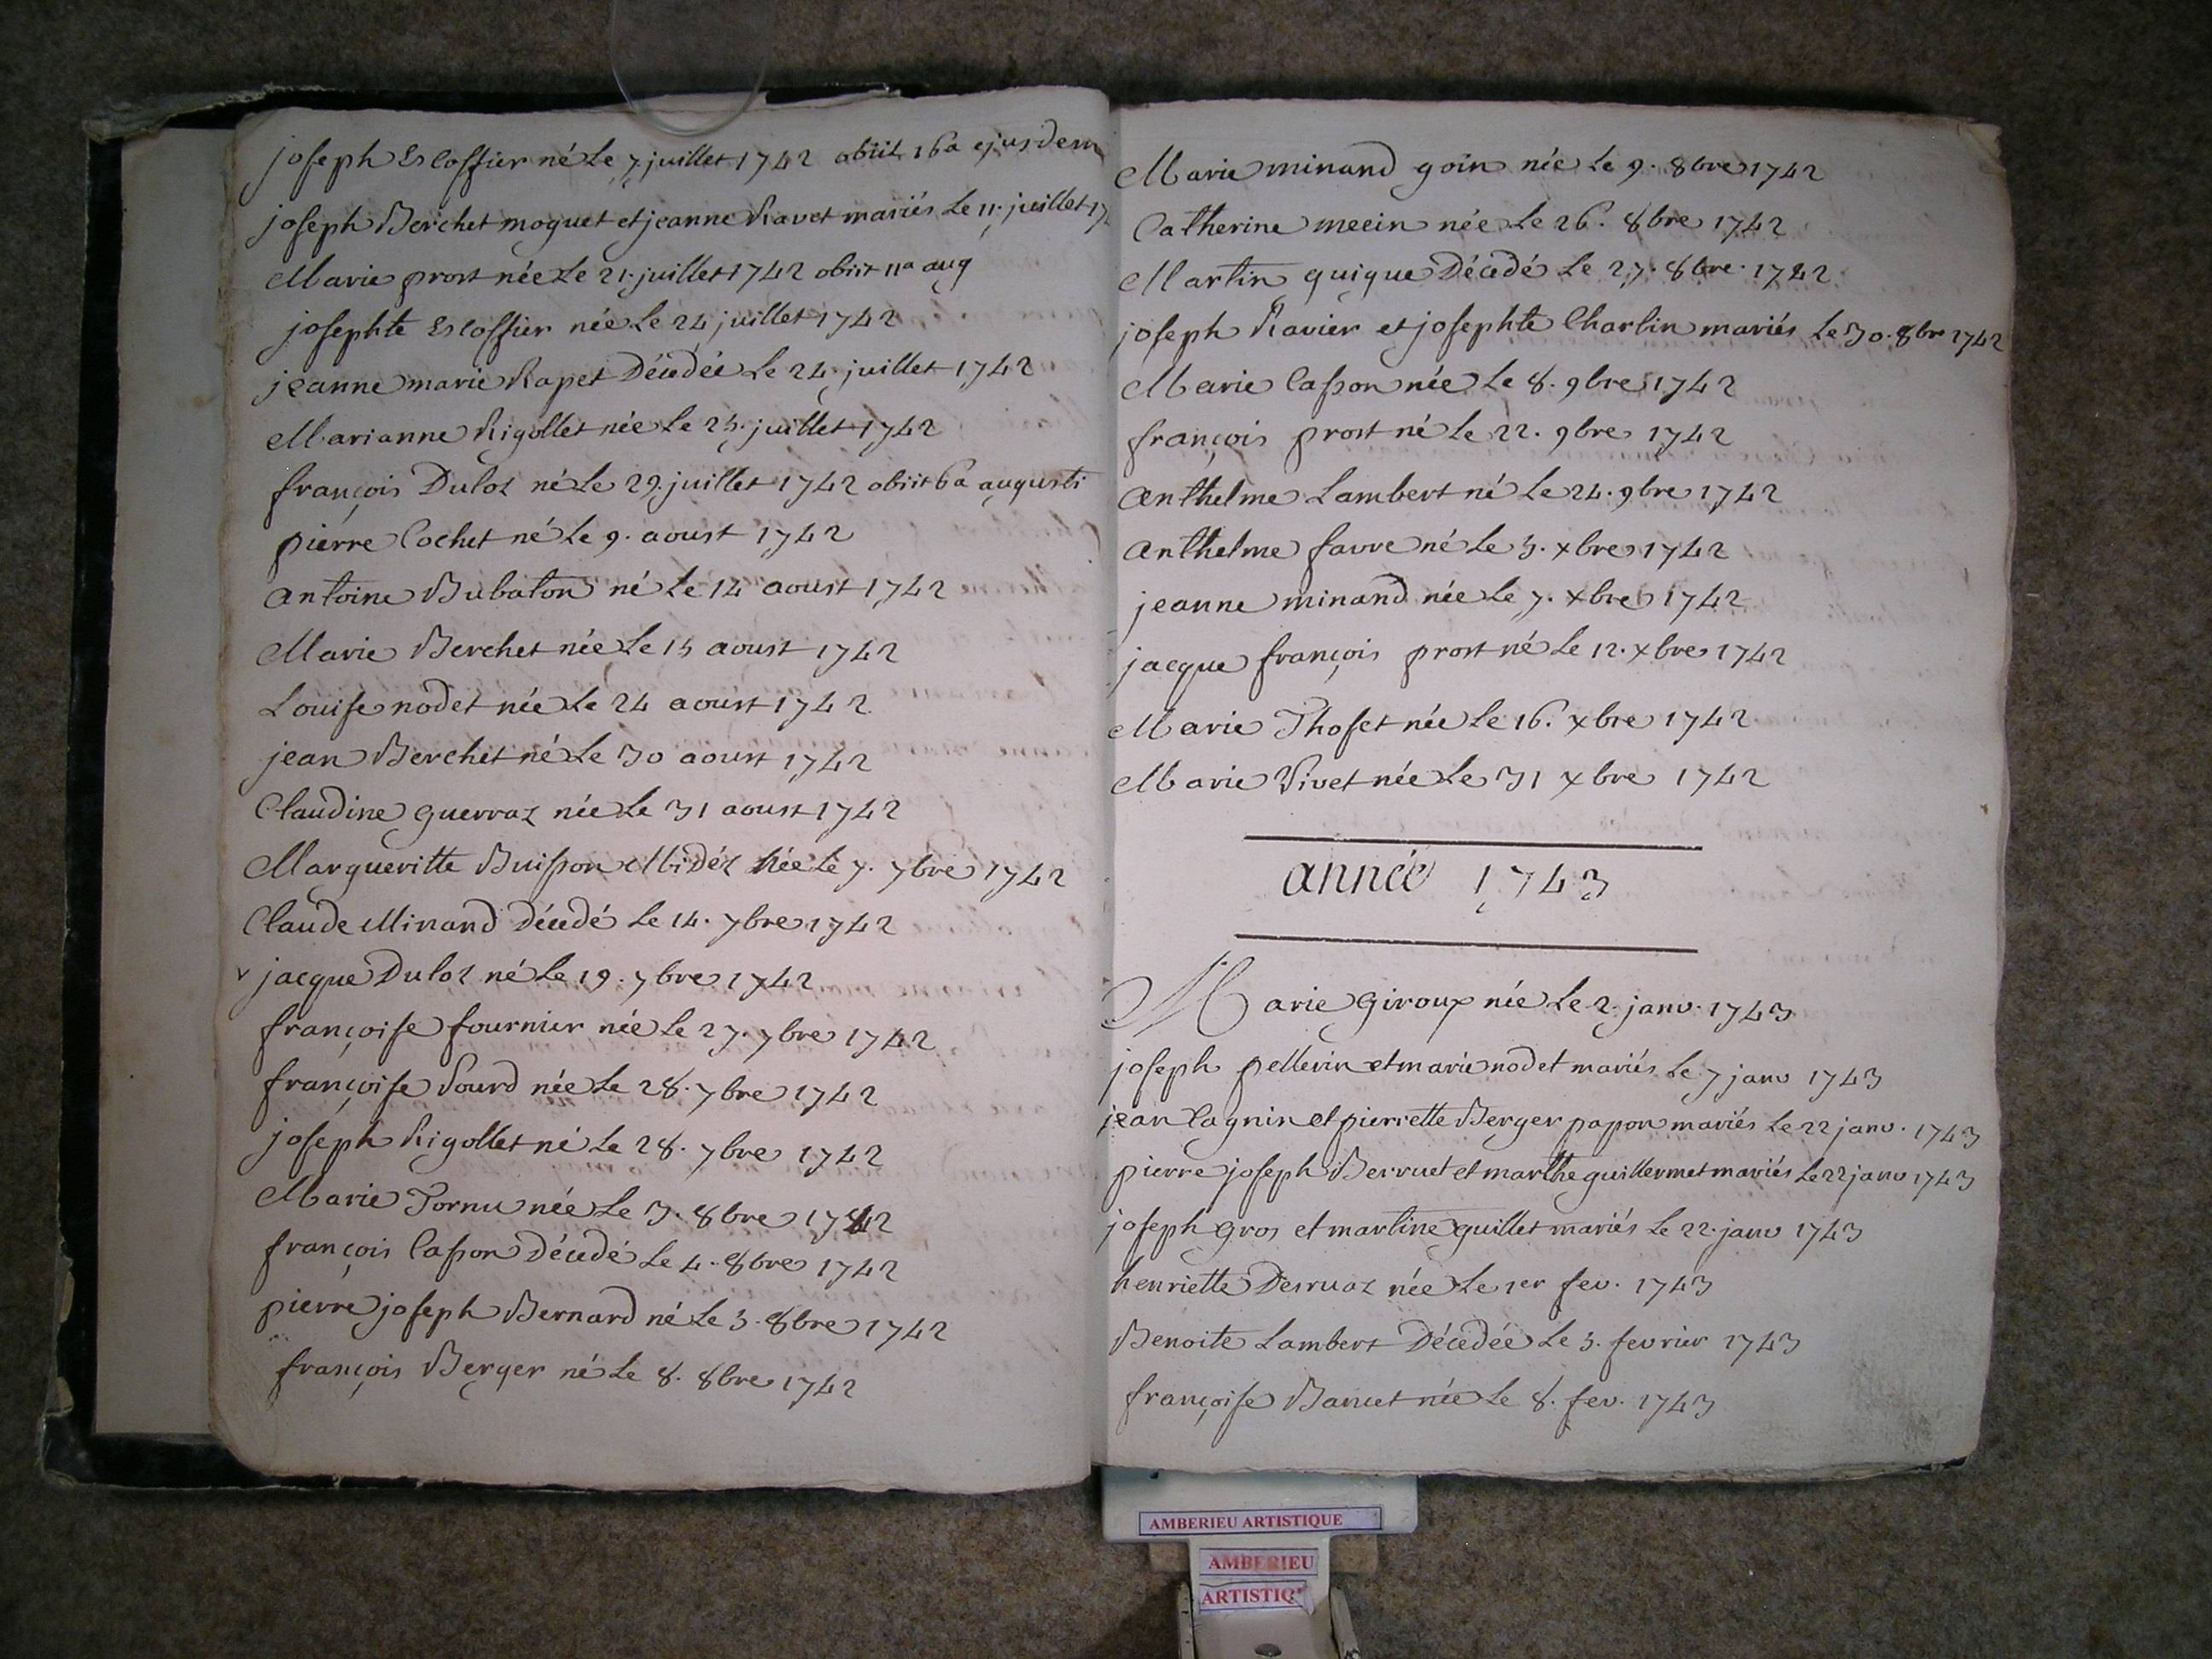 joseph Escoffier né Le 7 juillet 1742 obiit 16a ejusdem
joseph Berchet moguet et jeanne Ravet mariés Le 11. juillet 17
Marie prost née Le 21. juillet 1742 obiit 11a aug
josephte Escoffier née Le 24 juillet 1742
jeanne marie Rapet Décédée Le 24 juillet 1742
Marianne Rigollet née Le 25. juillet 1742
françois Duloz né Le 29. juillet 1742 obiit 6a augusti
pierre Cochet né Le 9. aoust 1742
antoine Bubaton né Le 14 aoust 1742
Marie Berchet née Le 15 aoust 1742
Louise nodet née Le 24 aoust 1742
jean Berchet né Le 30 aoust 1742
Claudine guerraz née Le 31 aoust 1742
Margueritte Buisson Midéz née Le 7. 7bre 1742
Claude Minand Décédé Le 14. 7bre 1742
v jacque Duloz né Le 19. 7bre 1742
françoise fournier née Le 27. 7bre 1742
françoise Sourd née Le 28. 7bre 1742
joseph Rigollet né Le 28. 7bre 1742
Marie Tornu née Le 3. 8bre 1742
françois Casson Décédé Le 4. 8bre 1742
pierre joseph Bernard né Le 5. 8bre 1742
françois Berger né Le 8. 8bre 1742
Marie minand goin née Le 9. 8bre 1742
Catherine née Le 26. 8bre 1742
Martin quique Décédé Le 27. 8bre. 1742
joseph Ravier et josephte Charlin mariés Le 30. 8br 1742
Marie Casson née Le 8. 9bre 1742
françois prost né Le 22. 9bre 1742
anthelme Lambert né Le 24. 9bre 1742
anthelme favre né Le 5. xbre 1742
jeanne minand née Le 7. xbre 1742
jacque françois prost né Le 12. xbre 1742
Marie Thoset née Le 16. xbre 1742
Marie Vivet née Le 31 xbre 1742
année 1743
Marie giroux née Le 2. janv. 1743
joseph pellerin et marie nodet mariés Le 7 janv 1743
jean Cagnin et pierrette Berger papon mariés Le 22 janv. 1743
pierre joseph Berruet et marthe guillermet mariés Le 22 janv 1743
joseph gros et martine guillet mariés Le 22. janv 1743
henriette Desruaz née Le 1er fev. 1743
Benoite Lambert Décédée Le 5. fevrier 1743
françoise née Le 8. fev. 1743
AMBERIEU ARTISTIQUE
AMBERIEU
ARTISTIQ